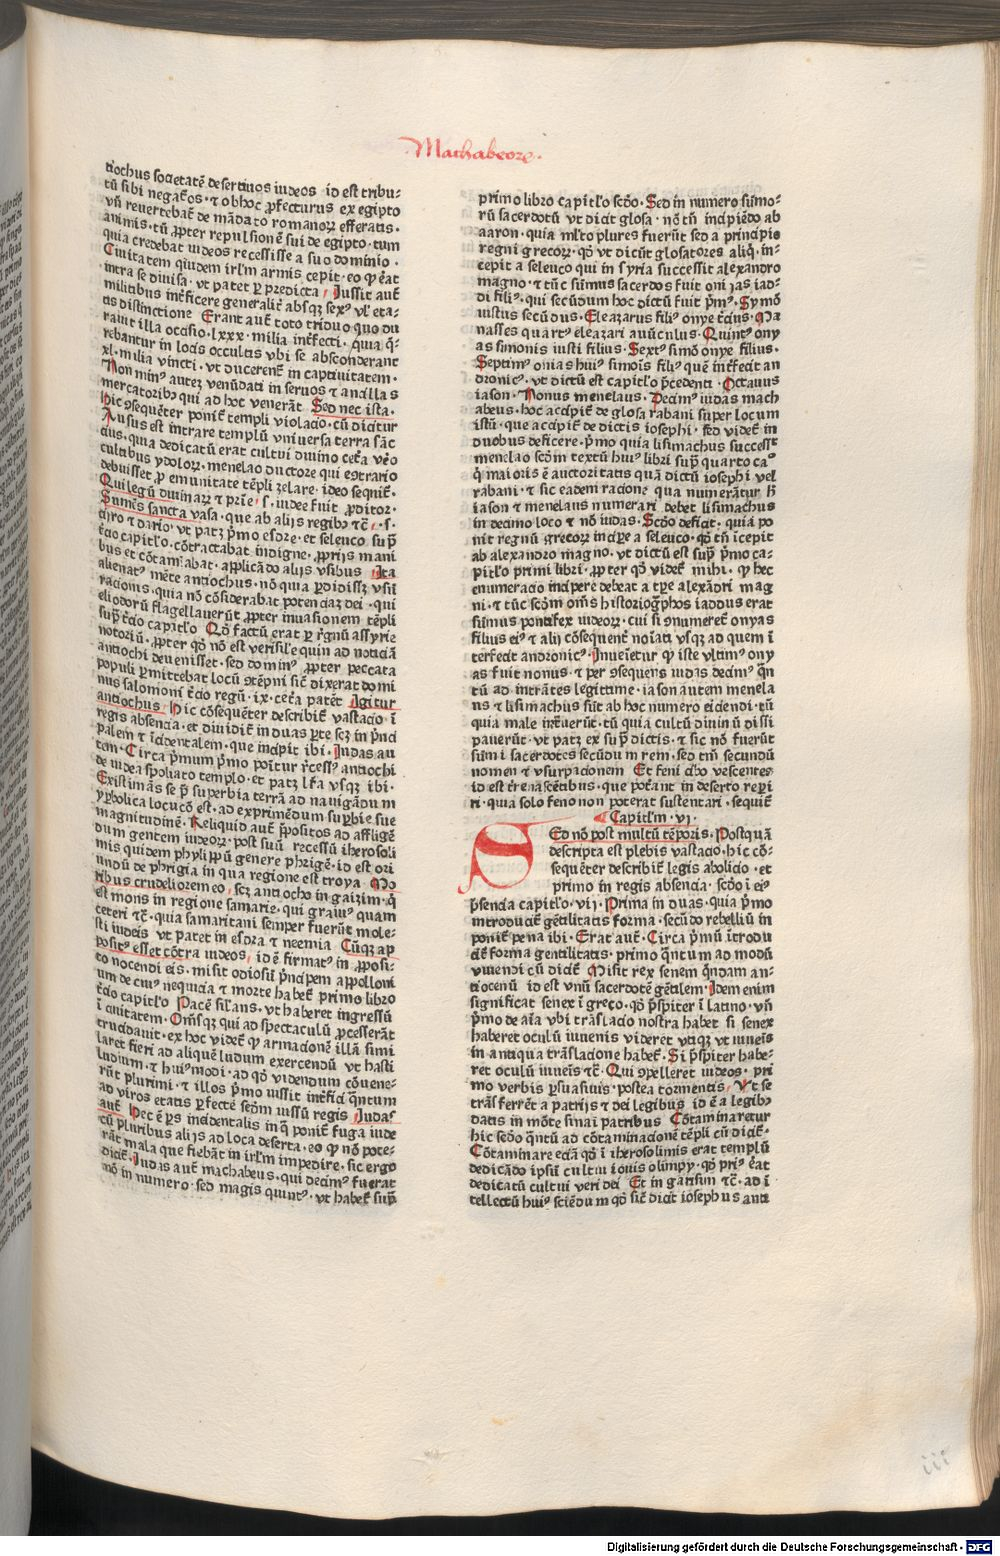 Machabeorꝫ.
tiochus societatē desertinos iudeos id est tribu-
tū sibi negatꝰos · ⁊ ob hoc ꝓfecturus ex egipto
vñ reuertebat᷑ de mādato romanorꝝ efferatis ·
animis · tū ꝓpter repulsionē sui de egipto · tum
quia credebat iudeos recessisse a suo dominio ·
Ciuitatem quidem irl̄m armis cepit · eo ꝙ erat
intra se diuisa · vt patet ꝑ predicta Jussit aut̄
militibus int̄ficere generalit̄ absqꝫ sexꝰ vl̓ eta-
tis distinctione Erant aut̄ toto triduo quo du
rauit illa occisio · lxxx · milia int̄fecti · quia q̄-
rebantur in locis occultis vbi se absconderant
xl · milia vincti · vt ducerent᷑ in captiuitatem ·
Non minꝰ auteꝫ venūdati in seruos ⁊ ancillas
mercatoribꝰ qui ad hoc venerāt Sed nec ista ·
hic ꝯsequēter ponit᷑ templi violacio · cū dicitur
Ausus est intrare templū vniuersa terra sāc
cius · quia dedicatū erat cultui diuino cet̓a v̓o
cultibus ydolorꝝ · menelao ductore qui econtrario
debuisset ꝓ emunitate tēpli zelare · ideo seqnit᷑ ·
Qui legū diuinarꝝ ⁊ pr̄ie · s · iudee fuit ꝓditor ·
Sumēs sancta vasa · que ab alijs regibꝰ ⁊c̄ · s ·
cyro ⁊ dario · vt patꝫ p̄mo esdre · et seleuco sup̄
t̓cio capitl̓o · cōtractabat indigne · ꝓprijs mani
bus et cōtam̄abat · applicādo alijs vsibus Ita
alienatꝰ mēte antiochus · nō qua ꝑdidissꝫ vsū
racionis · quia nō cōsiderabat potenciaꝫ dei · qui
eliodorū flagellauerūt ꝓpter inuasionem tēpli
sup̄ t̓cio capitl̓o Qō factū erat ꝑ r̓gnū assyrie
notoriū · ꝓpter qō nō est verisil̓e quin ad noticiā
antiochi deuenisset · sed dominꝰ ꝓpter peccata
populi ꝑmittebat locū ꝯtēpni sic̄ dixerat domi
nus salomoni t̓cio regū · ix · cet̓a patēt Igitur
antiochus · Hic cōsequēter describit᷑ vastacio ī
regis absencia · et diuidit᷑ in duas ꝑte scꝫ in p̄nci
palem ⁊ īcidentalem · que incipit ibi · Judas au
tem · Circa p̄mum p̄mo poītur r̓cessꝰ antiochi
de iudea spoliato templo · et patꝫ lr̄a vsqꝫ ibi ·
Existimās se p̄ superbia terrā ad nauigādum
yꝑbolica locucō est · ad exprimēdum suꝑbie sue
magnitudinē · Reliquid aut̄ p̄positos ad affligē
dum gentem iudeorꝝ · post suū recessū iherosoli
mis quidem phylippū genere phrigē · id est ori
undū de phrigia in qua regione est troya Mo
ribus crudeliorem eo scꝫ antiocho in gaizim · q̄
est mons in regione samarie · qui grauiꝰ quam
ceteri ⁊c̄ · quia samaritani semper fuerūt mole-
sti iudeis vt patet in esdra ⁊ neemia Cūqꝫ ap
positꝰ esset cōtra iudeos id ē firmatꝰ in ꝓposi-
to nocendi eis · misit odiosū p̄ncipem appolloni
um de cuiꝰ nequicia ⁊ morte habet᷑ primo libro
t̓cio capitl̓o Pacē sil̓ans · vt haberet ingressū
ī ciuitatem · Om̄sqꝫ qui ad spectaculū ꝓcesserāt
trucidauit · ex hoc videt᷑ ꝙ armacionē illā simi
laret fieri ad aliquē ludum exercendū vt hasti
ludium · ⁊ huiꝰmodi · ad qō videndum cōuene-
rūt plurimi · ⁊ illos p̄mo iussit int̄fici qntum
ad viros etatis ꝑfecte scdm iussū regis Judas
aut̄ Hec ē ꝑs incidentalis in q̄ ponit᷑ fuga iude
cū pluribus alijs ad loca deserta · eo ꝙ nō pote-
rāt mala que fiebāt in irl̄m impedire · sic ergo
dicit᷑ · Judas aut̄ machabeus · qui decimꝰ fuerat
mō in numero · sed magis quintꝰ · vt habet᷑ sup̄
primo libro capitl̓o scdo · Sed in numero sūmo-
rū sacerdotū vt dicit glosa · nō tū incipiēdo ab
aaron · quia ml̓to plures fuerūt sed a principio
regni grecorꝝ · qō vt dicūt glosatores aliq̄ · in-
cepit a seleuco qui in syria successit alexandro
magno · ⁊ tūc sūmus sacerdos fuit onias iad-
di filiꝰ · qui secūdum hoc dictū fuit p̄mꝰ · Symō
iustus secūdus · Eleazarus filiꝰ onye t̓ciꝰ · Ma
nasses quartꝰ eleazari auūculus · Quintꝰ ony
as simonis iusti filius · Sextꝰ simō onye filius ·
Septimꝰ onias huiꝰ simoīs filiꝰ quē int̄fecit an
dronicꝰ · vt dictū est capitl̓o p̄cedenti · Octauus
iason · Nonus menelaus · Decimꝰ iudas mach
abeus · hoc accipit᷑ de glosa rabani super locum
istū · que accipit᷑ de dictis iosephi · sed videt᷑ in
duobus deficere · p̄mo quia lisimachus successit
menelao scdm textū huiꝰ libri sup̄ quarto ca°
q̄ maioris ē auctoritatis quā dictū iosephi vel
rabani · ⁊ sic eadem racione qua numerātur h̄
iason ⁊ menelaus numerari debet lisimachus
in decimo loco ⁊ nō iudas · Scdo deficit · quia po
nit regnū grecorꝝ incipere a seleuco · qō tn̄ īcepit
ab alexandro magno · vt dictū est sup̄ p̄mo ca-
pitl̓o primi libri · ꝓpter qō videt᷑ mihi · ꝙ hec
enumeracio incipere debeat a tꝑe alexādri mag
ni · ⁊ tūc scdm om̄s historiog̓phos iaddus erat
sūmus pontifex iudeorꝝ · cui si ꝯnumeret᷑ onyas
filius eiꝰ ⁊ alij cōsequent᷑ noīati vsqꝫ ad quem ī
terfecit andronicꝰ · Inueīetur ꝙ iste vltimꝰ ony
as fuit nonus · ⁊ per ꝯsequens iudas decimꝰ qn
tū ad intrātes legittime · iason autem menela
us ⁊ lisimachus sūt ab hoc numero eiciendi · tū
quia male int̄uerūt · tū quia cultū diuinū dissi
pauerūt · vt patꝫ ex sup̄ dictis · ⁊ sic nō fuerūt
sūmi sacerdotes secūdum rem · sed tm̄ secundū
nomen ⁊ vsurpacionem Et feni cibo vescentes
id est t̓renascētibus · que potāt in deserto reperi
ri · quia solo feno non poterat sustentari · sequit᷑
Capitl̓m · vj ·
Sed nō post multū tēporis · Postquā
descripta est plebis vastacio · hic cō-
sequēter describit᷑ legis abolicio · et
primo in regis absencia · scdo ī eiꝰ
p̄sencia capitl̓o · vij · Prima in duas · quia p̄mo
introducit᷑ gētilitatis forma · secūdo rebelliū in
ponit᷑ pena ibi · Erat aut̄ · Circa p̄mū ītrodu
cit᷑ forma gentilitatis · primo qntum ad modū
viuendi cū dicit᷑ Misit rex senem qndam an-
tiocenū id est vnū sacerdotē gētilem · Idem enim
significat senex ī greco · qō p̄spiter ī latino · vn̄
p̄mo de aīa vbi trāslacio nostra habet si senex
haberet oculū iuuenis videret vtiqꝫ vt iuueīs
in antiqua trāslacione habet᷑ · Si p̄spiter habe-
ret oculū iuueīs ⁊c̄ · Qui ꝯpelleret iudeos · pri
mo verbis ꝑsuasiuis · postea tormentis Vt se
trāsferrēt a patrijs ⁊ dei legibus id ē a legibꝰ
datis in mōte sinai patribus Cōtaminaretur
hic scdo qntū ad cōtaminacionē tēpli cū dicit᷑ ·
Cōtaminare eciā qō ī iherosolimis erat templū
dedicādo ipsū cultui iouis olimpy · qō priꝰ erat
dedicatū cultui veri dei Et in garisim ⁊c̄ · ad ī
tellectū huiꝰ sciēdum qō sic̄ dicit iosephus anti
iii
Digitalisierung gefördert durch die Deutsche Forschungsgemeinschaft · DFG